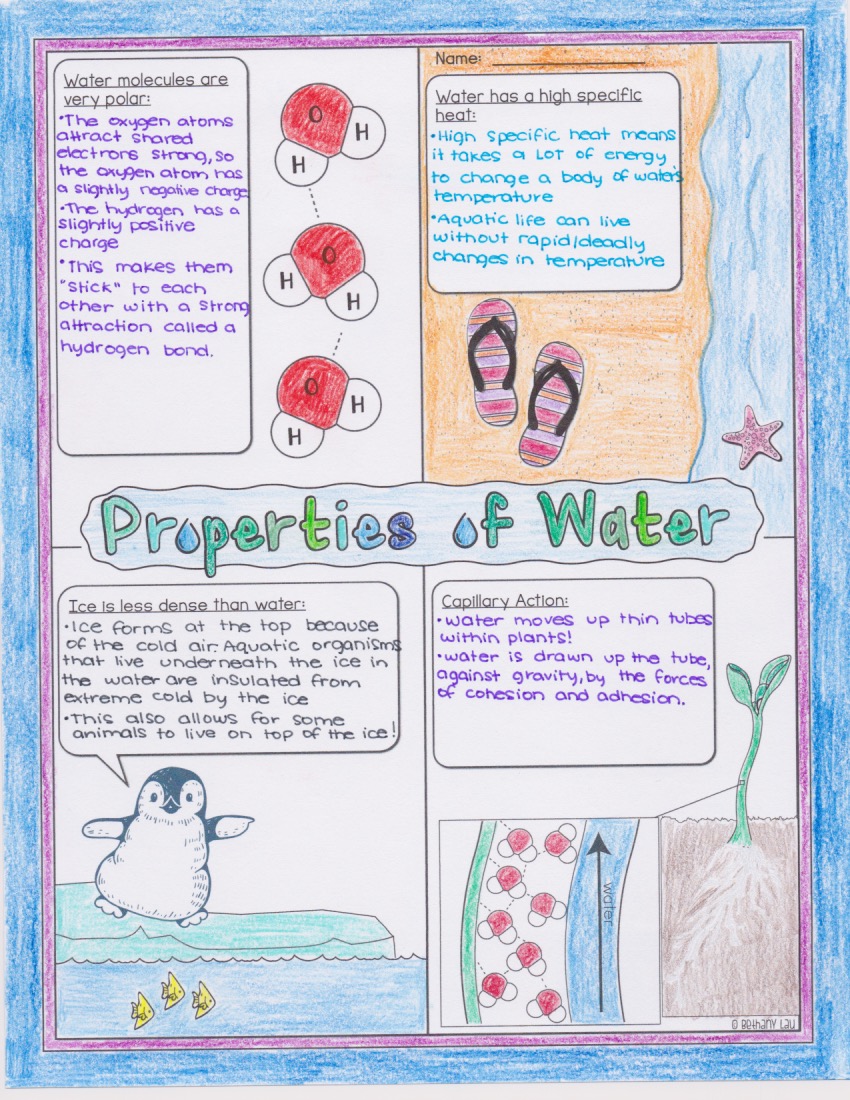 Water molecules are
very polar:
•The oxygen atoms
attract shared
electrons strong, so
the oxygen atom has
a slightly negative charge
•The hydrogen has a
slightly positive
charge
•This makes them
"stick" to each
other with a strong
attraction called a
hydrogen bond.
O
H
H
O
H
H
O
H
H
Name:
Water has a high specific
heat:
•High specific heat means
it takes a LOT of energy
to change a body of water's
temperature
•Aquatic life can live
without rapid/deadly
changes in temperature
Properties of Water
Ice is less dense than water:
•Ice forms at the top because
of the cold air. Aquatic organisms
that live underneath the ice in
the water are insulated from
extreme cold by the ice
•This also allows for some
animals to live on top of the ice!
Capillary Action:
•Water moves up thin tubes
within plants!
•water is drawn up the tube,
against gravity, by the forces
of cohesion and adhesion.
water
© Bethany Lau